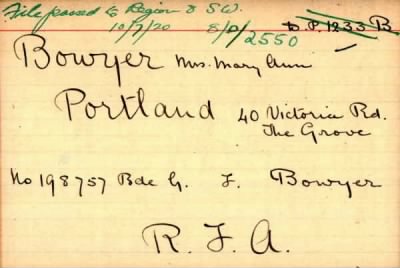 File passed to Region 8 S.W.
10/7/20 8/D/2550
D.P. 1233 B
Bowyer Mrs. Mary Ann
Portland 40 Victoria Rd.
The Grove
No 198757 Bde G. F. Bowyer
R. F. A.